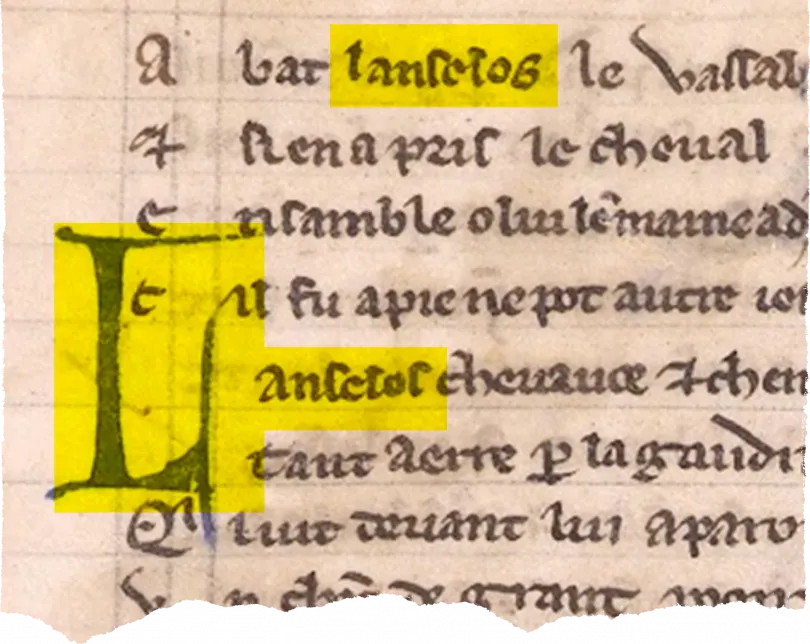 A bat lanselos le vassal
⁊ si en a pris le cheual
E nsamble o lui lẽmaine ad
C il fu a pie ne pot autre ie
Lanselos cheuauce ⁊ chem
Tant a erre ꝑ la gaudi
Q il uit deuant lui aparo
V n chĩr de grant